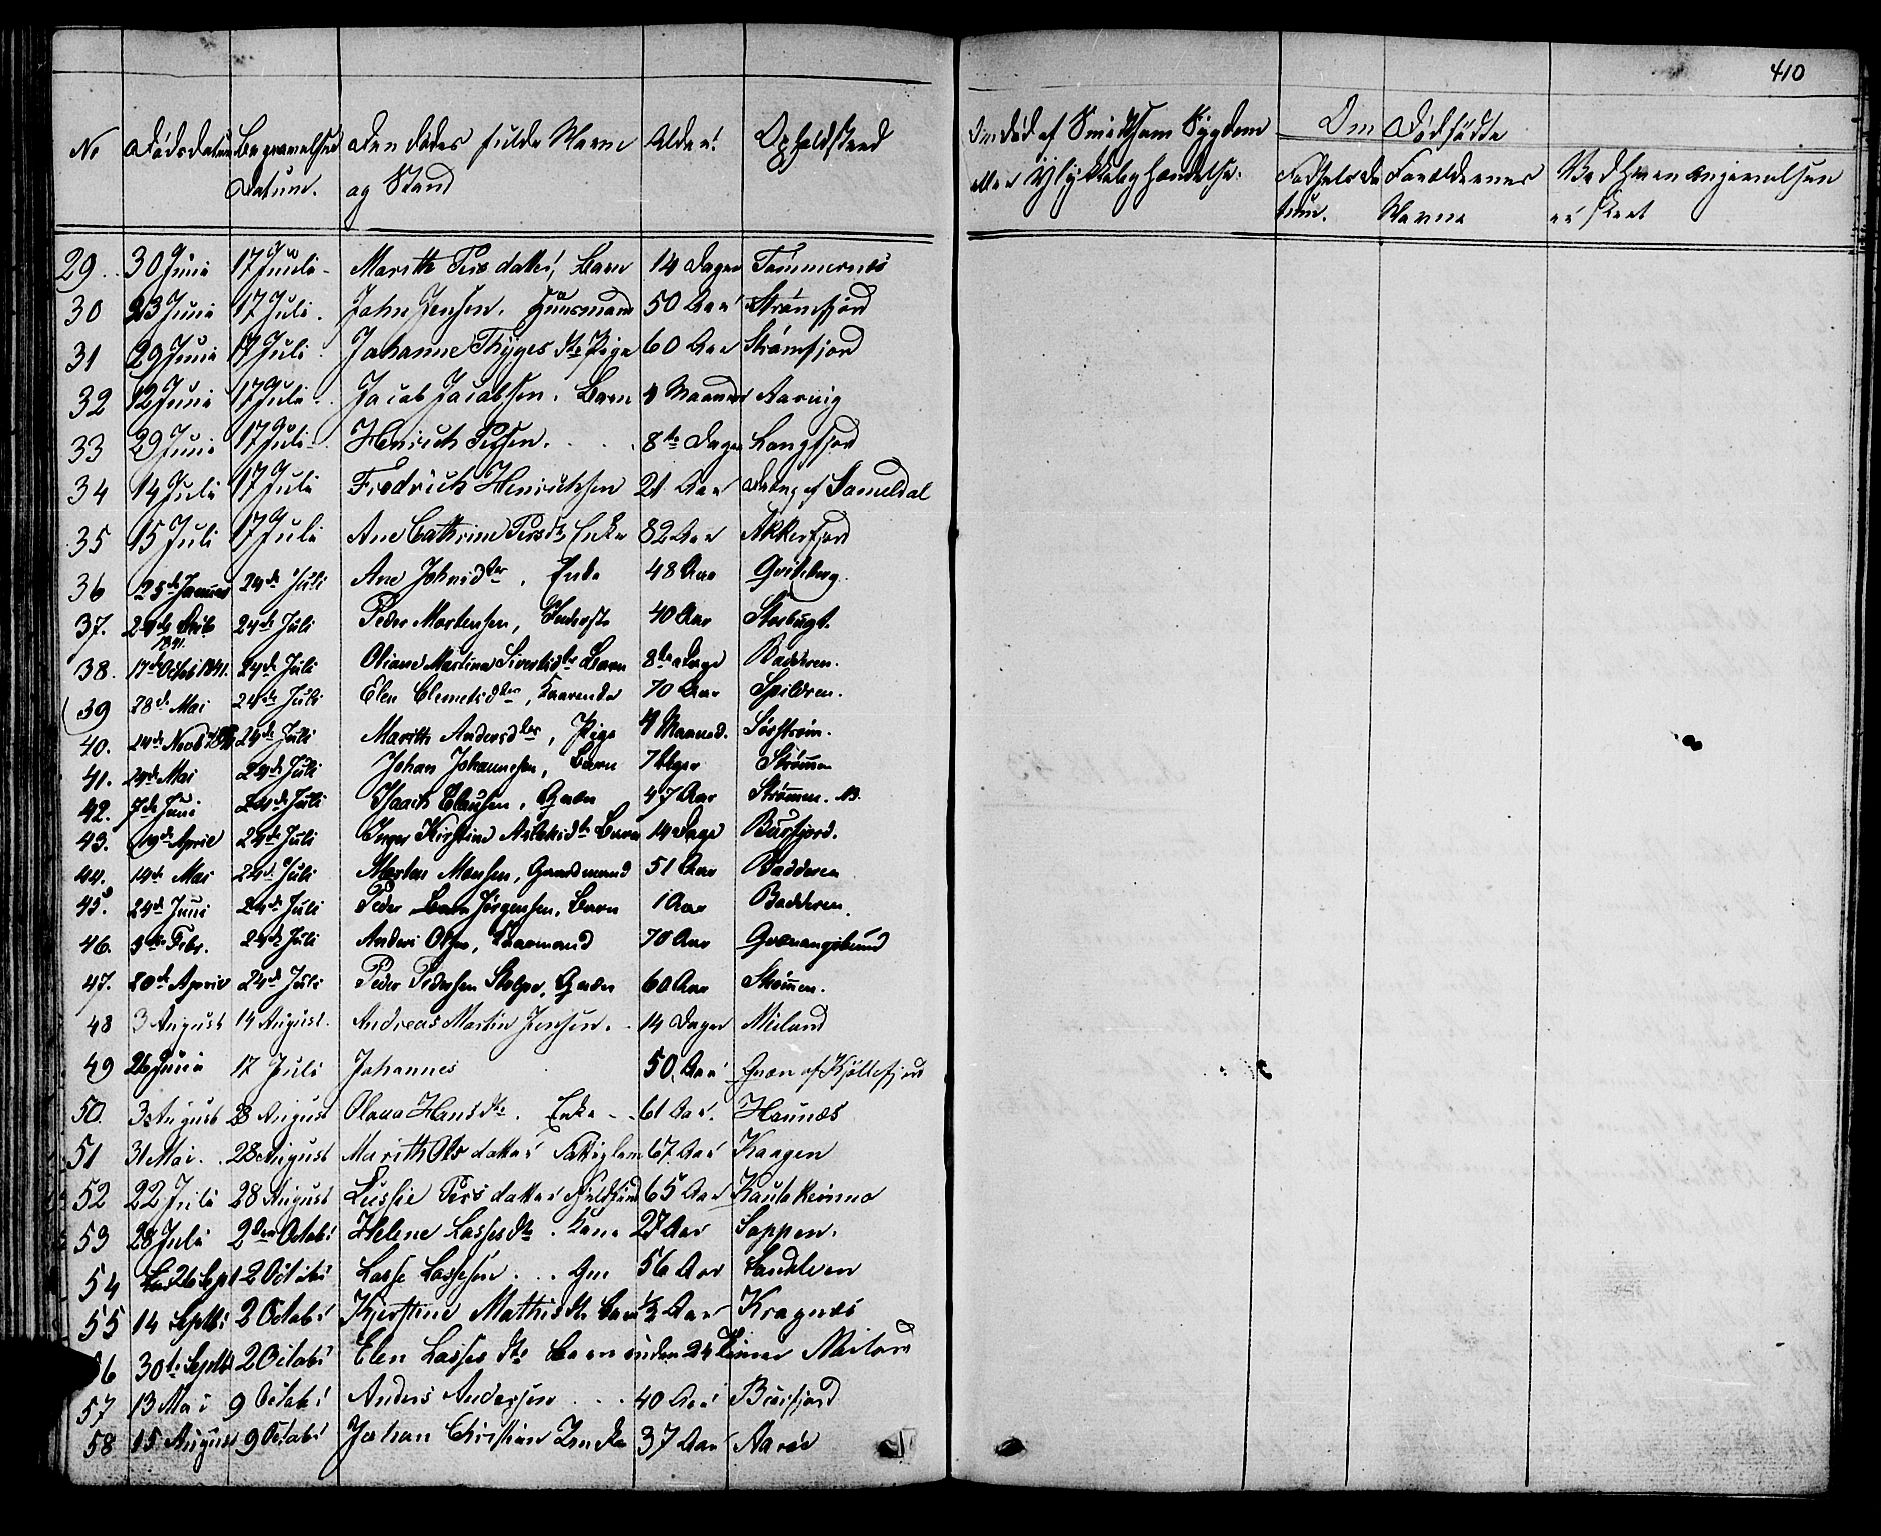 410
No Dødsdatum Begravelses Den dødes fulde Navn Alder Opholdsted Om død af Smitsom Sygdom Om Dødfødte
Datum. og Stand eller Ulykkelig Hændelse. Fødselsda Forældrenes Ved Hvem Angivelsen
tum. Navne er skeet
29. 30 Juni 17 Juli Marith Persdatter, Barn 14 Dager Tømmernes
30 23 Juni 17 Juli. John Jensen. Huusmand 50 Aar Strømfjord
31 29 Juni 17 Juli Johanne Thyges dtr Pige 60 Aar Strømfjord
32 12 Juni 17 Juli Jacob Jacobsen. Barn 4 Maaneder Aarvig
33 29 Juni 17 Juli Henrich Persen. 8te Dager Langfjord
34 14 Juli 17 Juli Fredrich Henrichsen 21 Aar Dreng af Sameldal
35 15 Juli 17 Juli Ane Cathrine Persdtr Enke 82 Aar Akkerfjord
36 25de Januar 24de Juli Ane Johnsdter, Enke 48 Aar Qvitberg.
37. 24de 24de Juli Peder Mortensen, 40 Aar Storbugt.
1841.
38. 17de Octob 1841. 24de Juli Oliane Martina Sivertsdtr Barn 8te Dage Badderen.
39 28de Mai 24de Juli Elen Clemetsdter, 70 Aar Spildren.
40. 24de Novb 24de Juli Marith Andersdter, Pige 4 Maaned. Sørstrøm.
41. 24de Mai 24de Juli Johan Johannesen, Barn 7 Uger Strømmen
42. 7de Juni 24de Juli Isaach Clausen, Qvæn 47 Aar Strømmen. NB.
43. 19de April 24de Juli Inger Kirstine Aslaksdtr Barn 14 Dage Burfjord.
44. 14de Mai 24de Juli Morten Monsen, Gaardmand 51 Aar Badderen
45. 24de Juni 24de Juli Peder Jørgensen, Barn 1 Aar Badderen.
46. 3de Febr. 24de Juli Anders Olsen, 70 Aar Qvænangsbund
47. 20de April 24de Juli Peder Pedersen Stolpe, Qvæn 60 Aar Strømmen.
48 3 August 14 August. Andreas Martin Jensen. 14 Dager Meiland
49 26 Juni 17 Juli Johannes 50 Aar Qvæn af Kjøllefjord
50. 3 August 28 August Olava Hansdtr. Enke 61 Aar. Haunæs
51 31 Mai. 28 August Marith Olsdatter Fattiglem 67 Aar Kaagen
52 22 Juli 28 August Lussie Persdatter Fjeldfind 65 Aar Kautokeinno
53 28 Juli 2den Octobr Helene Lassesdtr. Kone 27 Aar Sappen.
54 26 Sept 2 Octobr Lasse Lassesen. 56 Aar Sandleven
55 14 Septbr 2 Octobr Kjerstine Mathisdtr Barn 1/2 Aar Kragenæs
56 30te Septb 2 Octobr Elen Lasses dtr Barn under 24 Timer Meiland
57 13 Mai 9 Octobr Anders Andersen 40 Aar Burfjord
58 15 August 9 Octobr Johan Christian 37 Aar Aarøe